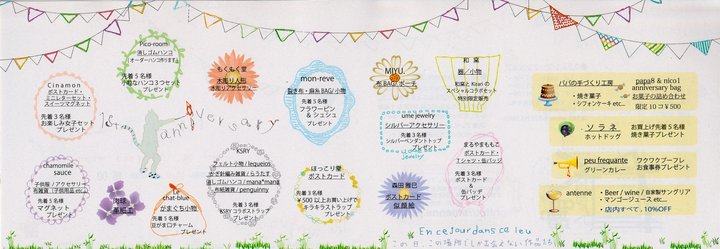 Pico-room
消しゴムハンコ
(オーダーハンコ作ります)
先着5名様
小粒なハンコ3つセット
プレゼント
Cinamon
ポストカード・
ミニレターセット・
スイーツマグネット
先着3名様
お楽しみ女子セット
プレゼント
もくもく堂
木彫り人形
木彫りアクセサリー
mon-reve
裂き布・麻糸BAG/小物
先着5名様
フラワーピン
& シュシュ
プレゼント
MIYU.
布BAG/ポーチ
和窯
器/小物
和窯と Keiri の
スペシャルコラボセット
特別限定販売
1st anniversary
ume jewelry
シルバーアクセサリー
先着3名様
シルバーペンダントトップ
プレゼント
jewelry
まるやまももこ
ポストカード・
Tシャツ・缶バッジ
先着3名様
ポストカード
&
缶バッジ
プレゼント
chamomile
sauce
子供服/アクセサリー
布雑貨/子供用品 etc...
先着5名様
マグネット
プレゼント
肉球
革細工
Le
chat-blue
がまぐち小物
先着3名様
豆がま口チャーム
プレゼント
KSRY
フェルト小物/lequeios
かぎ針編み雑貨/らうたす
消しゴムハンコ/mana*mana
布紙雑貨/penguinns
先着3名様
KSRYコラボストラップ
プレゼント
ほっこり慶
ポストカード
先着3名様
¥500以上お買い上げで
キラキラストラップ
プレゼント
森田雅巳
ポストカード
似顔絵
パパの手づくり工房
・焼き菓子
・シフォンケーキ etc...
papa8 & nico1
anniversary bag
お菓子の詰め合わせ
限定10コ ¥500
ソラネ
ホットドッグ
お買上げ先着5名様
焼き菓子プレゼント
peu frequante
グリーンカレー
ワクワクブーフレ
お食事券プレゼント
antenne
・Beer / wine / 自家製サングリア
・マンゴージュース etc...
・店内すべて、10%OFF
En ce jour dans ce lieu
この日、この場所でしか出会えない作品たち